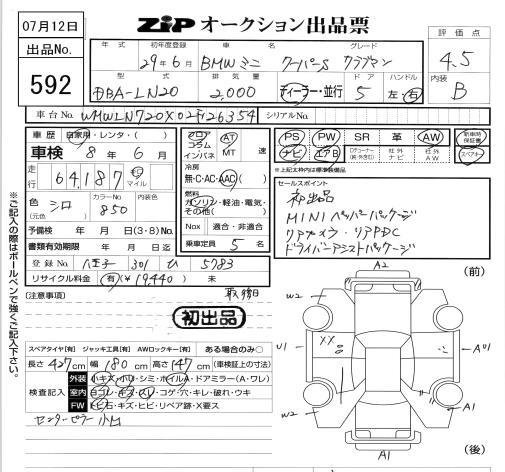 07月12日
出品No.
592
ZIP オークション出品票
評価点
4.5
内装
B
年式 初年度登録 車名 グレード
29年6月 BMWミニ クーパーS クラブマン
型式 排気量 ドア ハンドル
DBA-LN20 2,000 ディーラー・並行 5 左・右
車台No. WMWLN720X02F126354 シリアルNo.
車歴 自家用・レンタ・( )
車検 8年6月
走行 64,187 キロ マイル
色 シロ (元色) カラーNo. 850 内装色
予備検 年 月 日(3・8)No.
書類有効期限 年 月 日迄
登録No. 八王子 301 ひ 5783
リサイクル料金 有(¥19,440) 未
フロア コラム インパネ AT MT 速
冷房 無・C・AC・AAC( )
燃料 ガソリン・軽油・電気・その他( )
Nox 適合・非適合
乗車定員 5 名
PS PW SR 革 AW 新車時保証書
ナビ エアB 社外ナビ 社外AW スペアキー
※上記太枠内は標準装備品
セールスポイント
初出品
MINIペッパーパッケージ
リアカメラ・リアPDC
ドライバーアシストパッケージ
(注意事項)
初出品
スペアタイヤ[有] ジャッキ工具[有] AWロックキー[有] ある場合のみ○
長さ 427cm 幅 180cm 高さ 147cm (車検証上の寸法)
検査記入
外装 小キズ・小凹・シミ・ホイルA・ドアミラー(A・ワレ)
室内 ヨゴレ・キズ・スレ・コゲ・穴・キレ・破れ・ウキ
FW トビ石・キズ・ヒビ・リペア跡・X要ス
センターピラー 小凹
※ご記入の際はボールペンで強くご記入下さい。
A2 (前)
W2
U1 XX A U1
W2 A1
A1 (後)